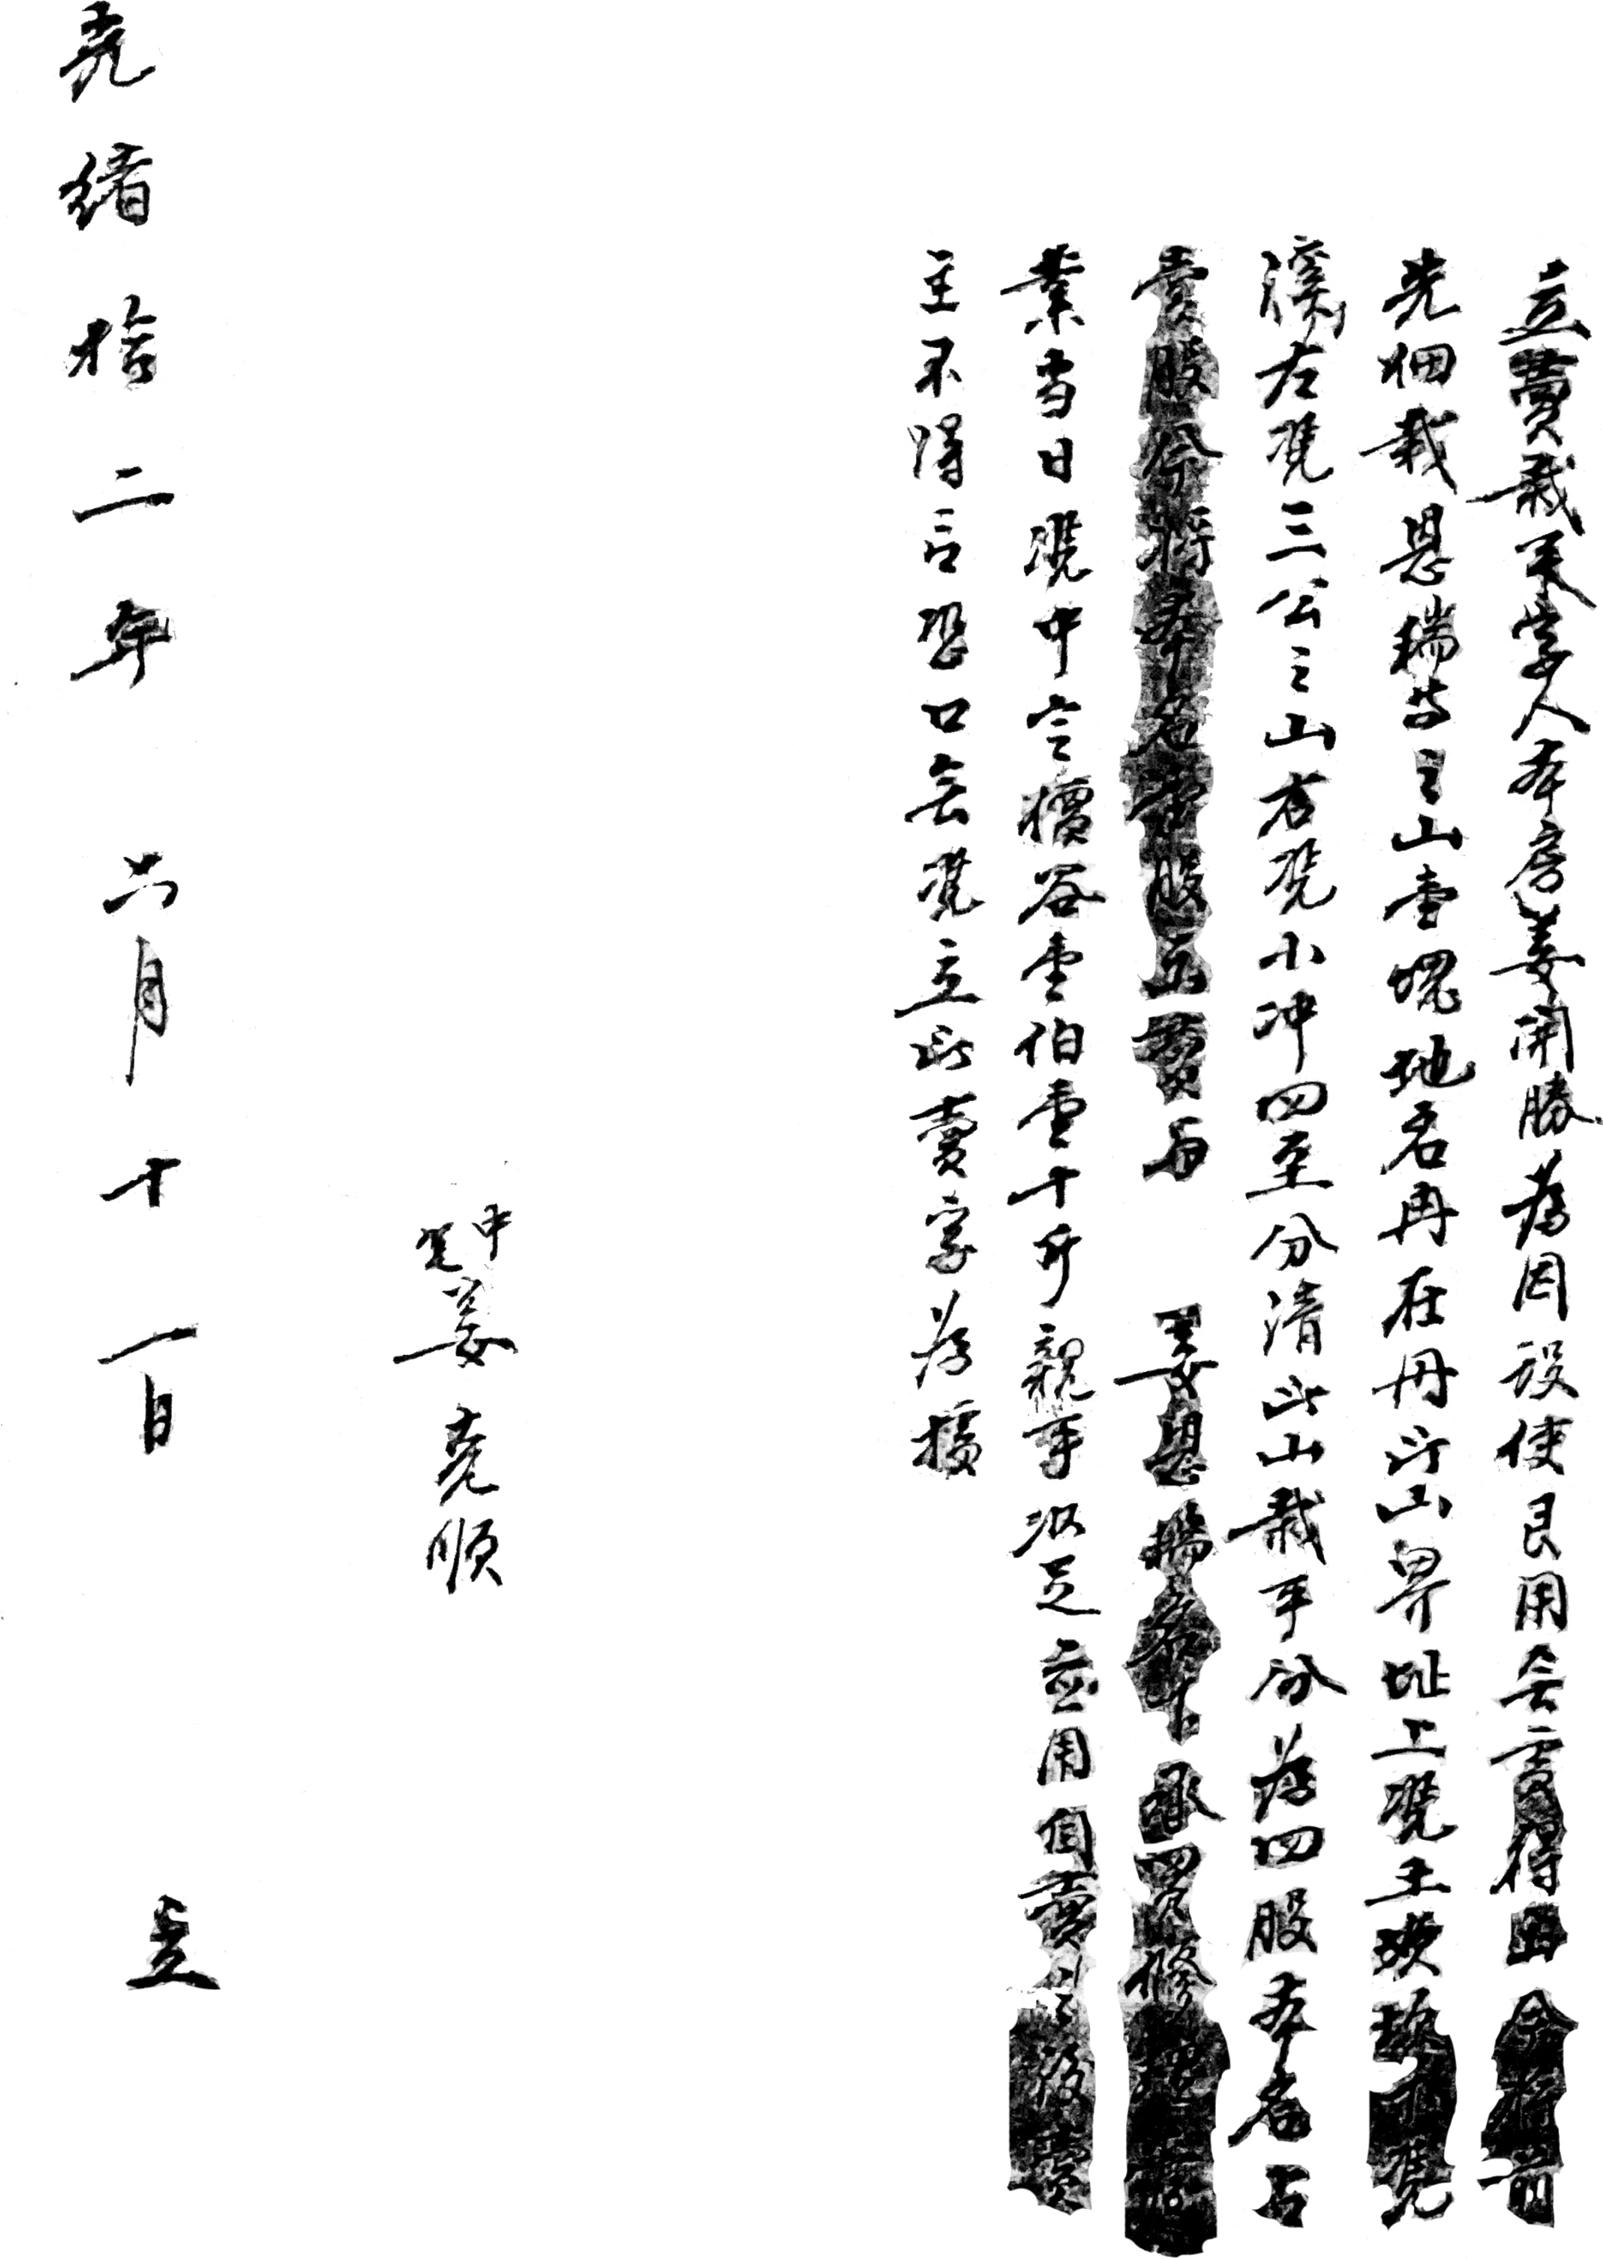 立賣栽手字人本房姜開勝為因設使艮用無處得出今將前
先佃栽恩瑞等之山壹塊地名冉在丹此山界址上凭土墈坎下凭
溪左凭三公之山右凭小冲四至分清此山栽手分為四股本名占
壹股今將本名壹股出賣與 姜恩瑞名下承買修理管
業当日凭中言價谷壹伯壹十斤親手收足並用自賣之後賣
主不得言恐口無凭立此賣字為據
中
凭
姜堯順
光緒拾二年六月十一日 立